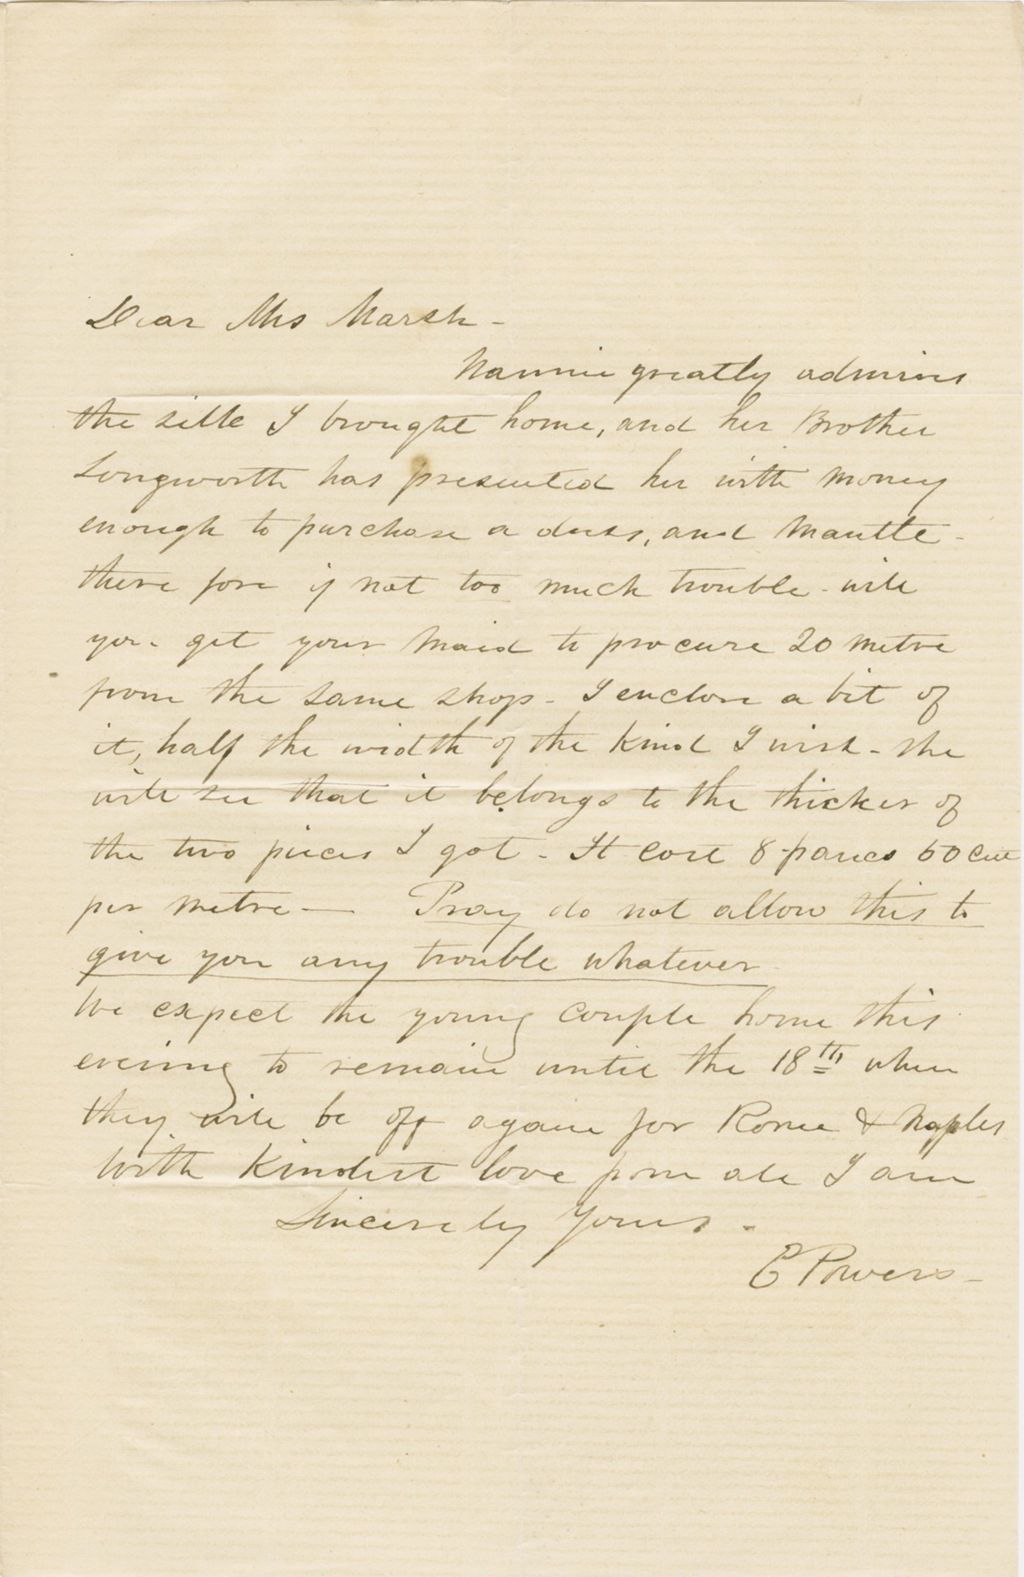 Dear Mrs Marsh -
Nannie greatly admires
the silk I brought home, and her Brother
Longworth has presented her with money
enough to purchase a dress, and Mantle -
there fore if not too much trouble - will
you - get your Maid to procure 20 metre
from the same shop - I enclose a bit of
it, half the width of the kind I wish - she
will see that it belongs to the thicker of
the two pieces I got - It cost 8 francs 60 cent
per metre — Pray do not allow this to
give you any trouble whatever
We expect the young couple home this
evening to remain until the 18th when
they will be off again for Rome & Naples
With kindest love from all I am
Sincerely Yours -
E Powers -